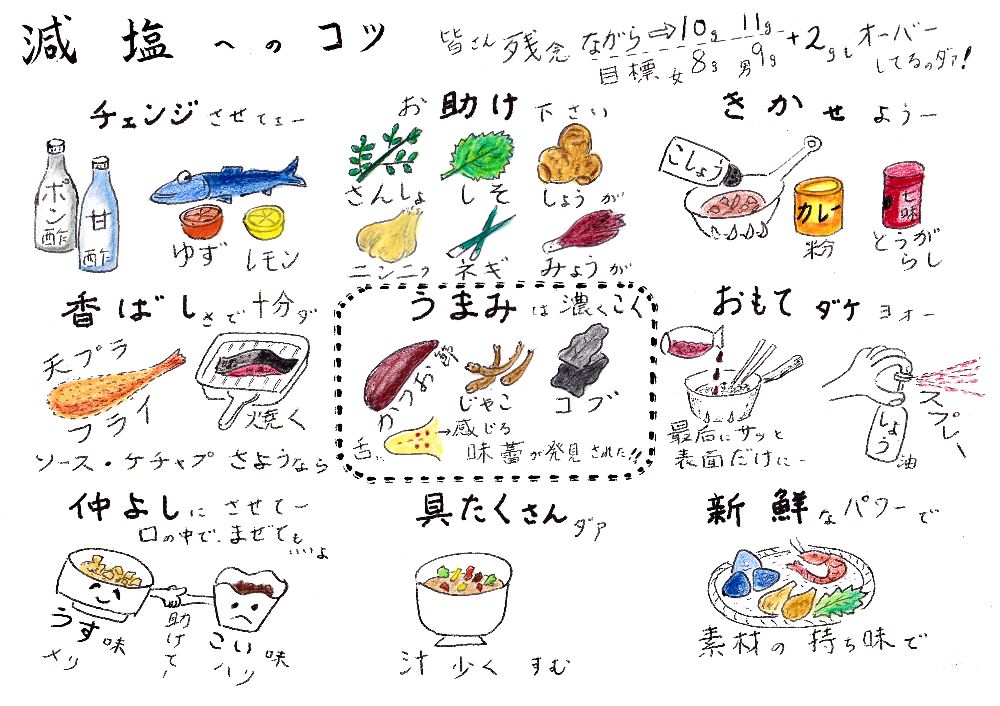 減塩へのコツ
皆さん残念ながら⇨10g 11g
目標 女8g 男9g
+2gもオーバー
してるのダァ!
チェンジさせてェー
ポン酢
甘酢
ゆず
レモン
お助け下さい
さんしょ
しそ
しょうが
ニンニク
ネギ
みょうが
きかせようー
こしょう
カレー
粉
七味
とうがらし
香ばしさで十分ダ
天プラ
フライ
焼く
ソース・ケチャプ さようなら
うまみは濃くこく
かつお節
じゃこ
コブ
舌に
→感じる
味蕾が発見された!!
おもてダケョオー
最后にサッと
表面だけにー
スプレー
しょう
油
仲よしにさせてー
口の中で、まぜても
いいよ
うす味
メリ
助けてー
こい味
ハリ
具たくさんダァ
汁少くすむ
新鮮なパワーで
素材の持ち味で